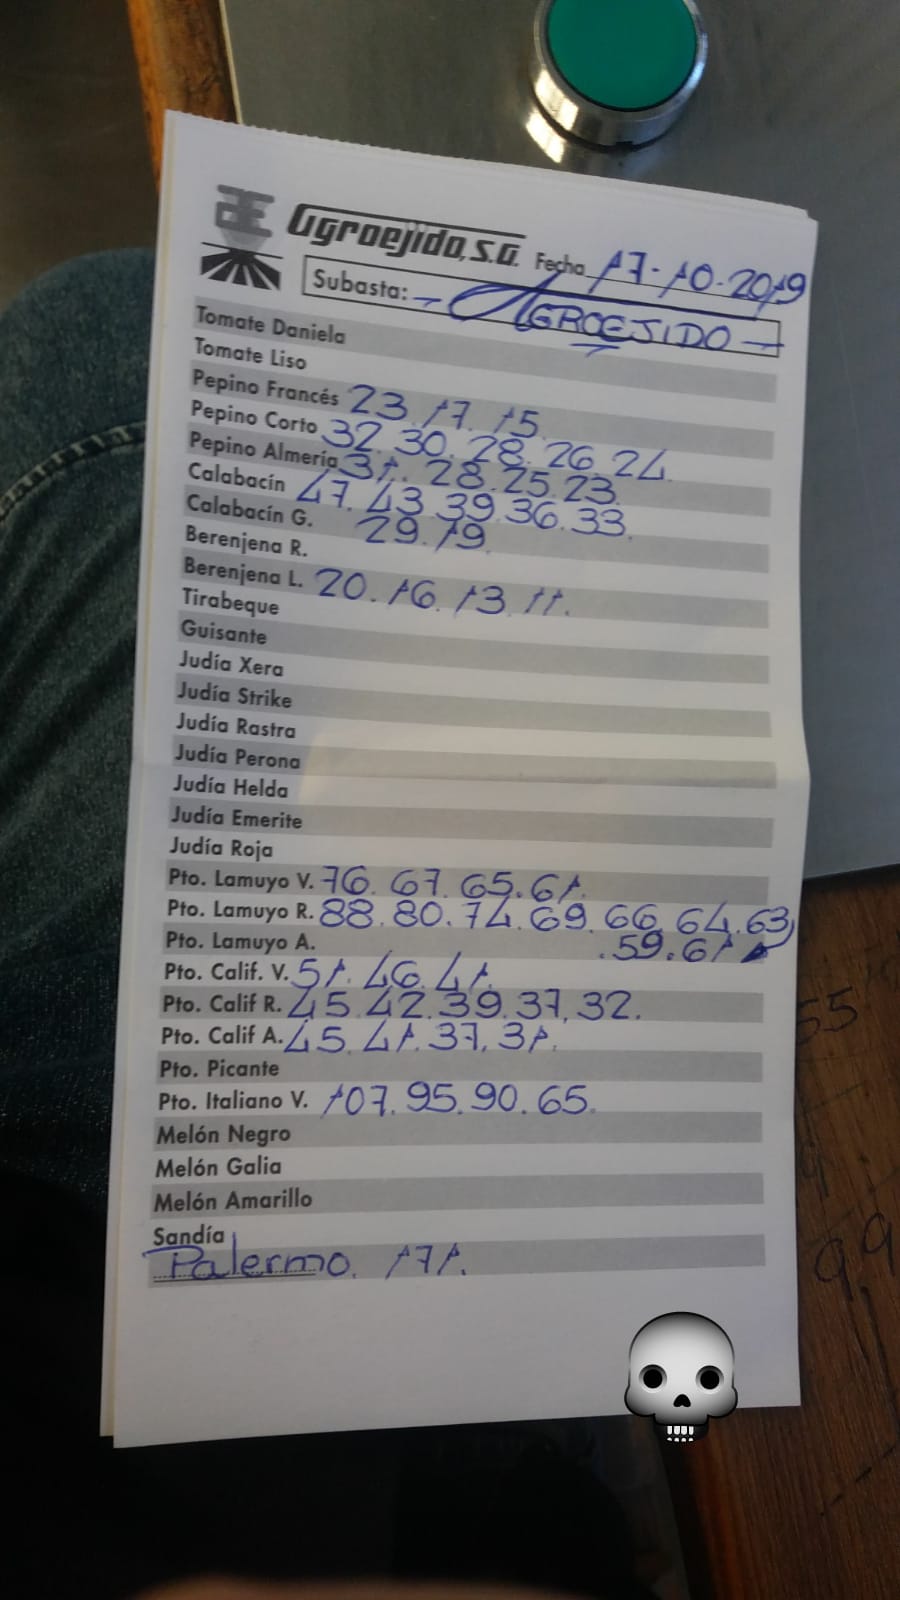 Agroejido, S.A. Fecha 17-10-2019
Subasta: - AGROEJIDO -
Tomate Daniela
Tomate Liso
Pepino Francés 23. 17. 15.
Pepino Corto 32. 30. 28. 26. 24.
Pepino Almería 31. 28. 25. 23.
Calabacín 47. 43. 39. 36. 33.
Calabacín G. 29. 19.
Berenjena R.
Berenjena L. 20. 16. 13. 11.
Tirabeque
Guisante
Judía Xera
Judía Strike
Judía Rastra
Judía Perona
Judía Helda
Judía Emerite
Judía Roja
Pto. Lamuyo V. 76. 67. 65. 61.
Pto. Lamuyo R. 88. 80. 74. 69. 66. 64. 63
.59.61
Pto. Lamuyo A.
Pto. Calif. V. 51. 46. 41.
Pto. Calif R. 45. 42. 39. 37. 32.
Pto. Calif A. 45. 41. 37. 31.
Pto. Picante
Pto. Italiano V. 107. 95. 90. 65.
Melón Negro
Melón Galia
Melón Amarillo
Sandía
Palermo. 171.
55